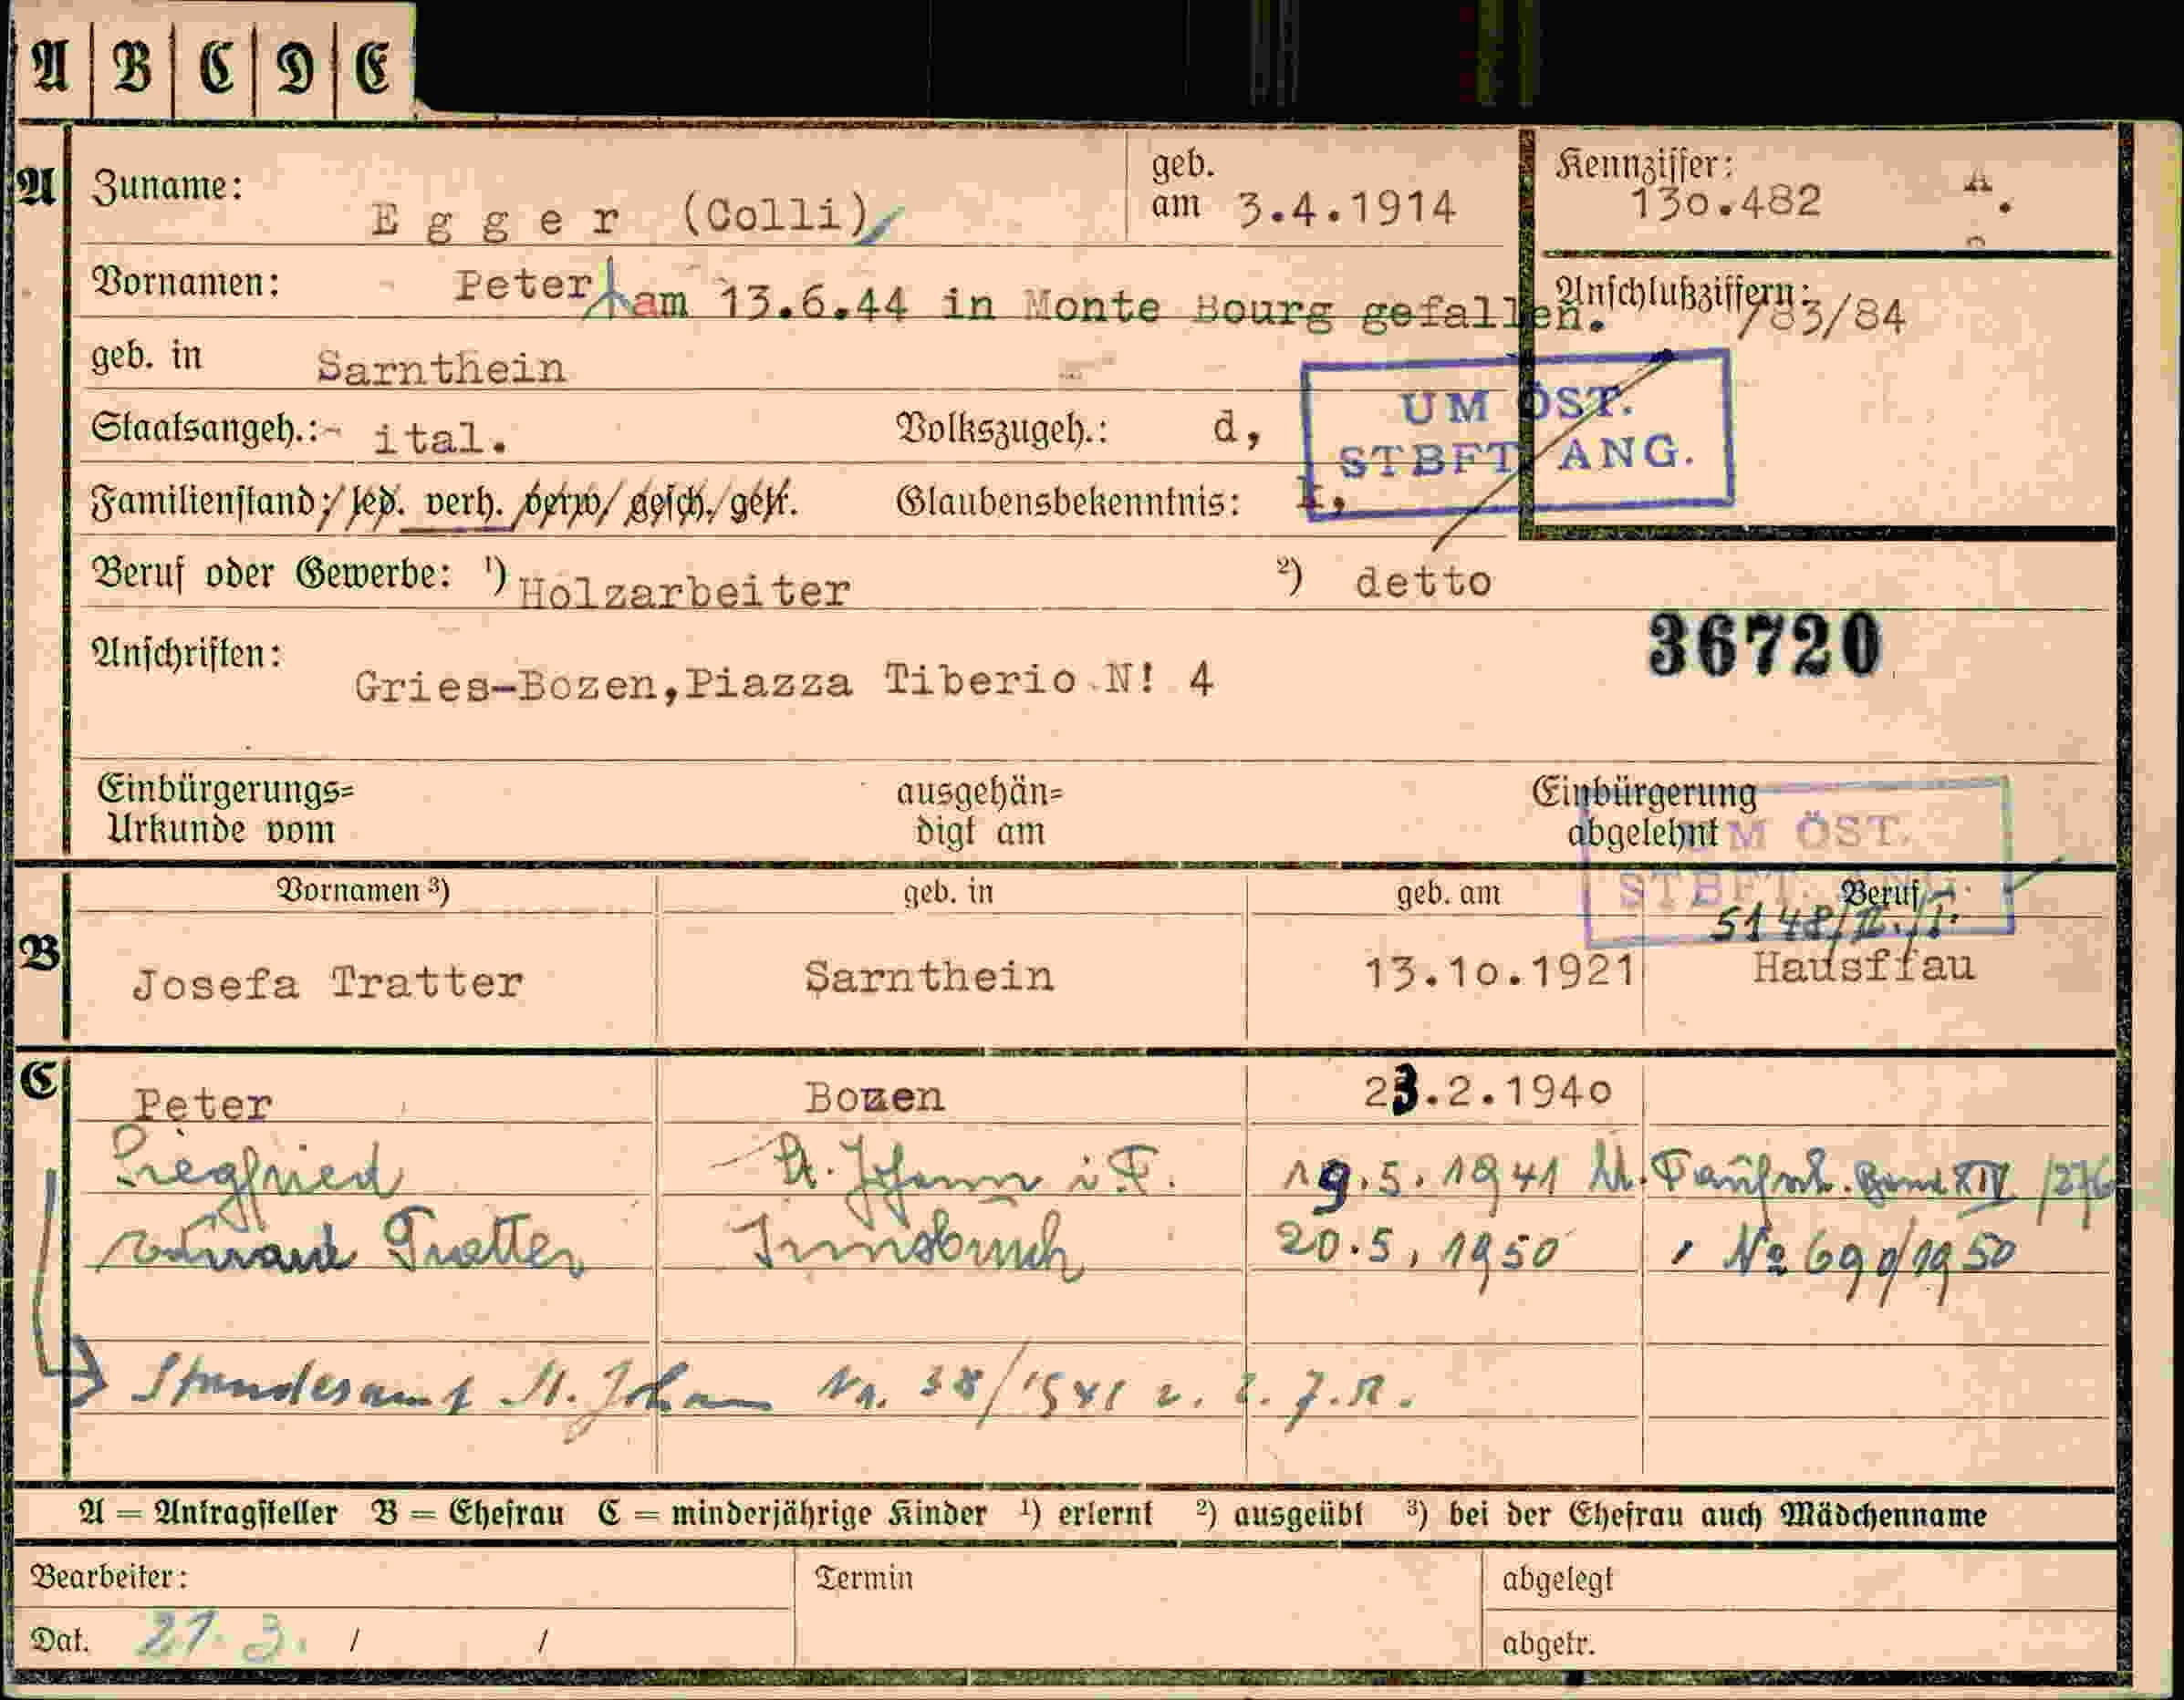 A B C D E
A Zuname: Egger (Colli) geb. am 3.4.1914 Kennziffer: 130.482 A.
Vornamen: Peter am 13.6.44 in Monte Bourg gefallen. Anschlußziffern: /83/84
geb. in Sarnthein
UM ÖST.
STBFT. ANG.
Staatsangeh.: ital. Volkszugeh.: d,
Familienstand: led. verh. verw. gesch. getr. Glaubensbekenntnis: k,
Beruf oder Gewerbe: ¹) Holzarbeiter ²) detto
36720
Anschriften: Gries-Bozen,Piazza Tiberio N! 4
Einbürgerungs= Urkunde vom ausgehän= digt am Einbürgerung abgelehnt
UM ÖST.
STBFT. ANG.
Vornamen ³) geb. in geb. am Beruf
5148/II./
B Josefa Tratter Sarnthein 13.10.1921 Hausffau
C Peter Bozen 23.2.1940
Siegfried St. Johann i. T. 19.5.1941 lt. Taufsch. Band XIV /276
Tratter Innsbruck 20.5.1950 " No 690/1950
Standesamt St. Johann Nr. 38/1941
A = Antragsteller B = Ehefrau C = minderjährige Kinder ¹) erlernt ²) ausgeübt ³) bei der Ehefrau auch Mädchenname
Bearbeiter: Termin abgelegt
Dat. 21.3. / / abgetr.